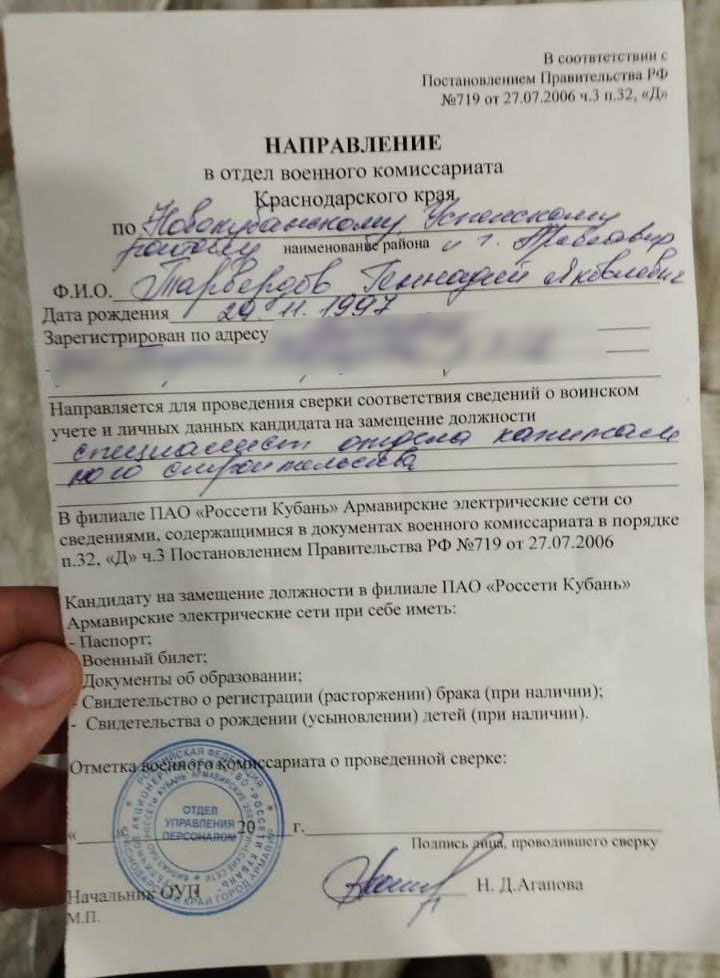 В соответствии с
Постановлением Правительства РФ
№719 от 27.07.2006 ч.3 п.32, «Д»
НАПРАВЛЕНИЕ
в отдел военного комиссариата
Краснодарского края
по Новокубанскому, Успенскому
районам и г. Армавир
наименование района
Ф.И.О. Тарвердов Геннадий Яковлевич
Дата рождения 29.11.1997
Зарегистрирован по адресу
Направляется для проведения сверки соответствия сведений о воинском
учете и личных данных кандидата на замещение должности
специалист отдела капиталь
ного строительства
В филиале ПАО «Россети Кубань» Армавирские электрические сети со
сведениями, содержащимися в документах военного комиссариата в порядке
п.32, «Д» ч.3 Постановлением Правительства РФ №719 от 27.07.2006
Кандидату на замещение должности в филиале ПАО «Россети Кубань»
Армавирские электрические сети при себе иметь:
- Паспорт;
Военный билет;
Документы об образовании;
- Свидетельство о регистрации (расторжении) брака (при наличии);
- Свидетельства о рождении (усыновлении) детей (при наличии).
Отметка военного комиссариата о проведенной сверке:
РОССИЙСКАЯ ФЕДЕРАЦИЯ
ОТДЕЛ
УПРАВЛЕНИЯ
ПЕРСОНАЛОМ
« » 20 г.
Подпись лица, проводившего сверку
Начальник ОУП Н. Д.Агапова
М.П.